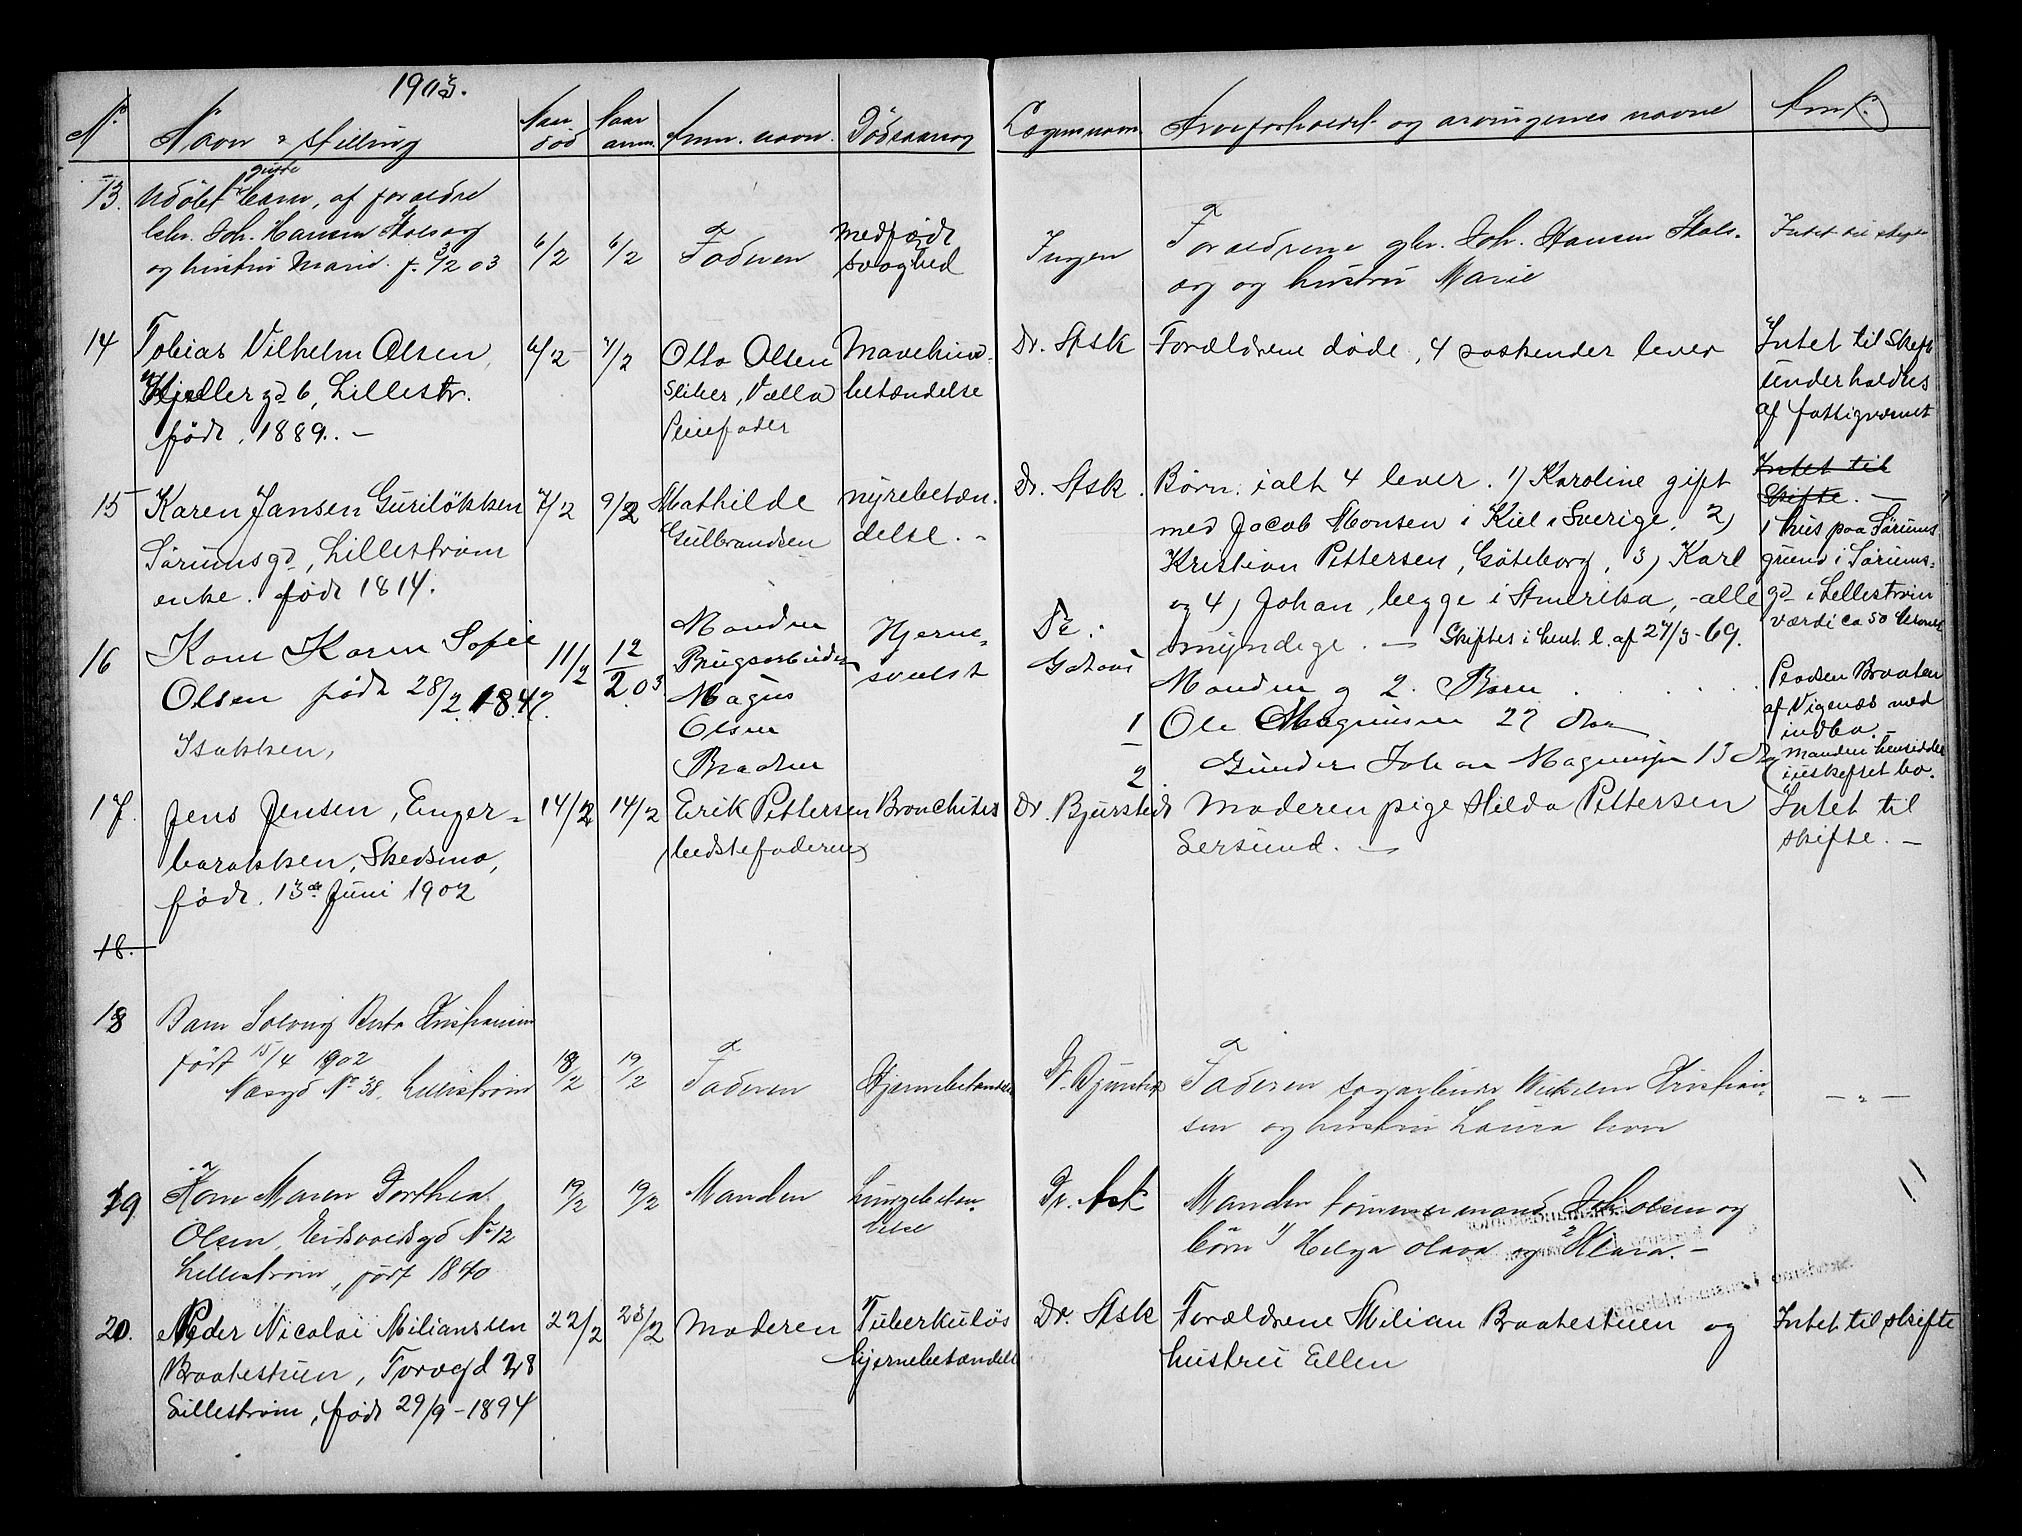 1903.
No Navn & stilling Naar død Naar anm. Anm. navn. Dødsaarsag Lægens navn Arveforholdet og arvingenes navne Anm.
13. Udøbt gutte barn, af forældre
Joh. Hansen
og hustru Marie. f. 3/2 03
6/2 6/2 Faderen
Medfødt
svaghed
Ingen
Forældrene gbr. Joh. Hansen Skals-
org og hustru Marie
Intet til skifte
14 Tobias Vilhelm Olsen,
Kjellergd 6, Lillestr.
født. 1889. -
6/2 7/2
Otto Olsen
Sliber, Vælla
Pleiefader
Mavehin-
betændelse
Dr. Ask
Forældrene døde, 4 søskender lever
Intet til Skift
underholdtes
af fattigvæsnet
15 Karen Jansen Guriløkken
Sørumsgd, Lillestrøm
enke. født 1814.
7/2 9/2
Mathilde
Gulbrandsen
nyrebetæn-
delse. -
Dr. Ask.
Børn: ialt 4 lever. 1) Karoline gift
med Jacob Monsen i Kiel i Sverige, 2)
Kristian Pettersen, Göteborg, 3) Karl
og 4) Johan, begge i Amerika, - alle
myndige. — Skiftes i henh. l. af 27/3-69.
Intet til
Skifte. —
1 hus paa Sørums-
grund i Sørums-
gd i Lillestrøm
værdi ca 50 kroner
16 Kone Karen Sofie
Olsen født 28/2 1847.
Isakken,
11/2 12/2 03
Manden
Brugsarbeider
Magus
Olsen
Braaten
Hjerne-
svulst
Dr.
Manden og 2. Børn
1 Ole Magnusen 27 Aar
2 Gunder Johan Magnusen 15 Aar
Pladsen Braaten
af Vigenæs med
indbo. -
Manden hensidder
i uskiftet bo.
17. Jens Jensen, Enger-
barakken, Skedsmo,
født. 13de Juni 1902
14/2 14/2
Erik Pettersen
(bedstefaderen)
Bronchites
Dr. Bjursted
Moderen pige Hilda Pettersen
Lersund. —
Intet til
skifte. —
18.
18 Barn Solveig Berta Kristiansen
født 15/4 1902
Næsgd No 38. Lillestrøm
18/2 19/2 Faderen Hjernebetændelse
Dr. Bjursted
Faderen sagarbeider Wilhelm Kristian-
sen og hustru Laura lever
— " —
19 Kone Maren Dorthea
Olsen, Eidsvoldsgd No 12
Lillestrøm, født 1840
19/2 19/2 Manden
Lungebetæn-
delse
Dr. Ask
Manden tømmermand Joh. Olsen og
børn 1) Helga Olava og 2) Klara. -
"
20. Peder Nicolai Milianssen
Braatestuen, Torvegd 28
Lillestrøm, født 29/9 - 1894
22/2 23/2 Moderen
Tuberkuløs
hjernebetændelse
Dr. Ask
Forældrene Milian Braatestuen og
hustru Ellen
Intet til skifte